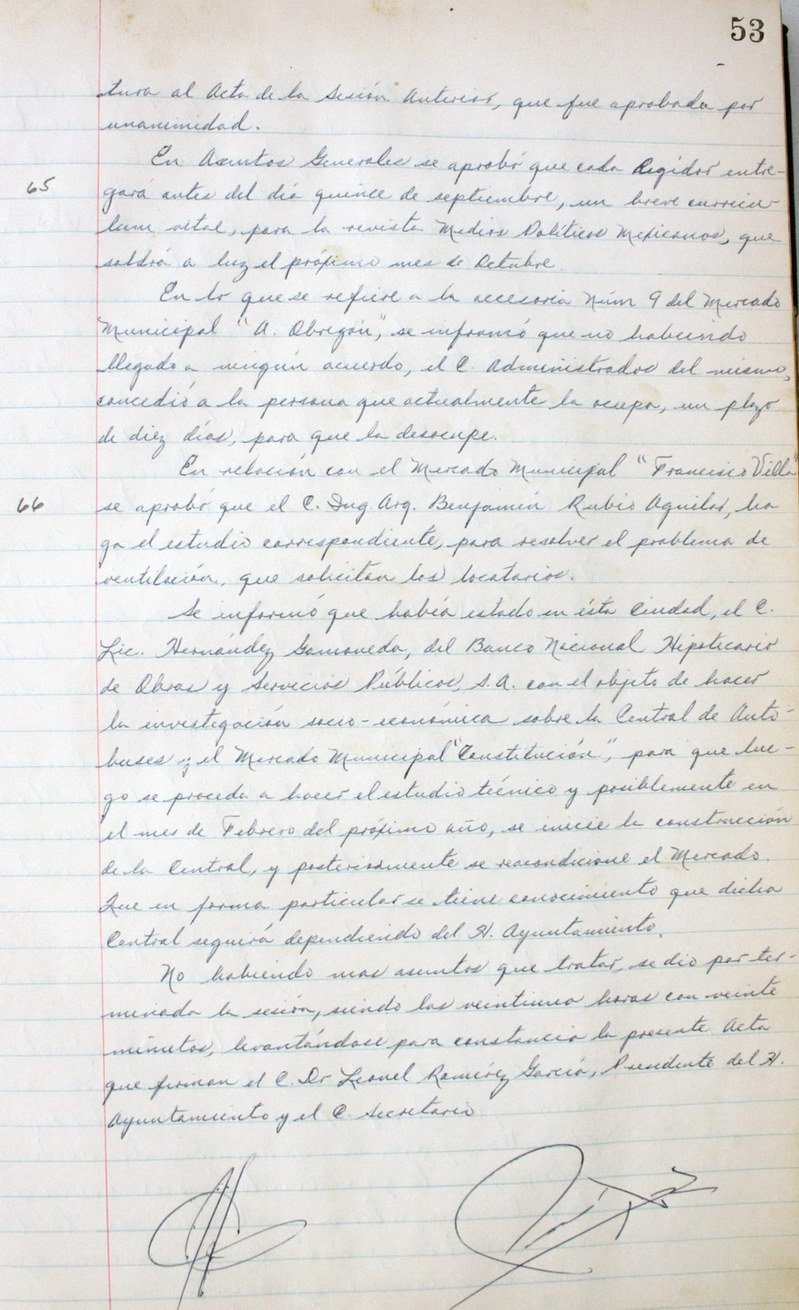 53
tura al Acta de la Sesión Anterior, que fue aprobada por
unanimidad.
En Asuntos Generales se aprobó que cada Regidor entre-
65
gará antes del día quince de septiembre, un breve curricu-
lum vital, para la revista Medios Políticos Mexicanos, que
saldrá a luz el próximo mes de Octubre.
En lo que se refiere a la accesoria Núm 9 del Mercado
Municipal "A. Obregón", se informó que no habiendo
llegado a ningún acuerdo, el C. Administrador del mismo,
concedió a la persona que actualmente la ocupa, un plazo
de diez días, para que la desocupe.
En relación con el Mercado Municipal "Francisco Villa"
66
se aprobó que el C. Ing Arq. Benjamín Rubio Aguilar, ha
ga el estudio correspondiente, para resolver el problema de
ventilación, que solicitan los locatarios.
Se informó que había estado en ésta Ciudad, el C.
Lic. Hernández Gamoneda, del Banco Nacional Hipotecario
de Obras y Servicios Públicos, S.A. con el objeto de hacer
la investigación socio-económica sobre la Central de Auto-
buses y el Mercado Municipal "Constitución", para que lue-
go se proceda a hacer el estudio técnico y posiblemente en
el mes de Febrero del próximo año, se inicie la construcción
de la Central, y posteriormente se reacondicione el Mercado.
Que en forma particular se tiene conocimiento que dicha
Central seguirá dependiendo del H. Ayuntamiento.
No habiendo mas asuntos que tratar, se dio por ter-
minada la sesión, siendo las veintiuna horas con veinte
minutos, levantándose para constancia la presente Acta
que firman el C. Dr Leonel Ramírez García, Presidente del H.
Ayuntamiento y el C. Secretario